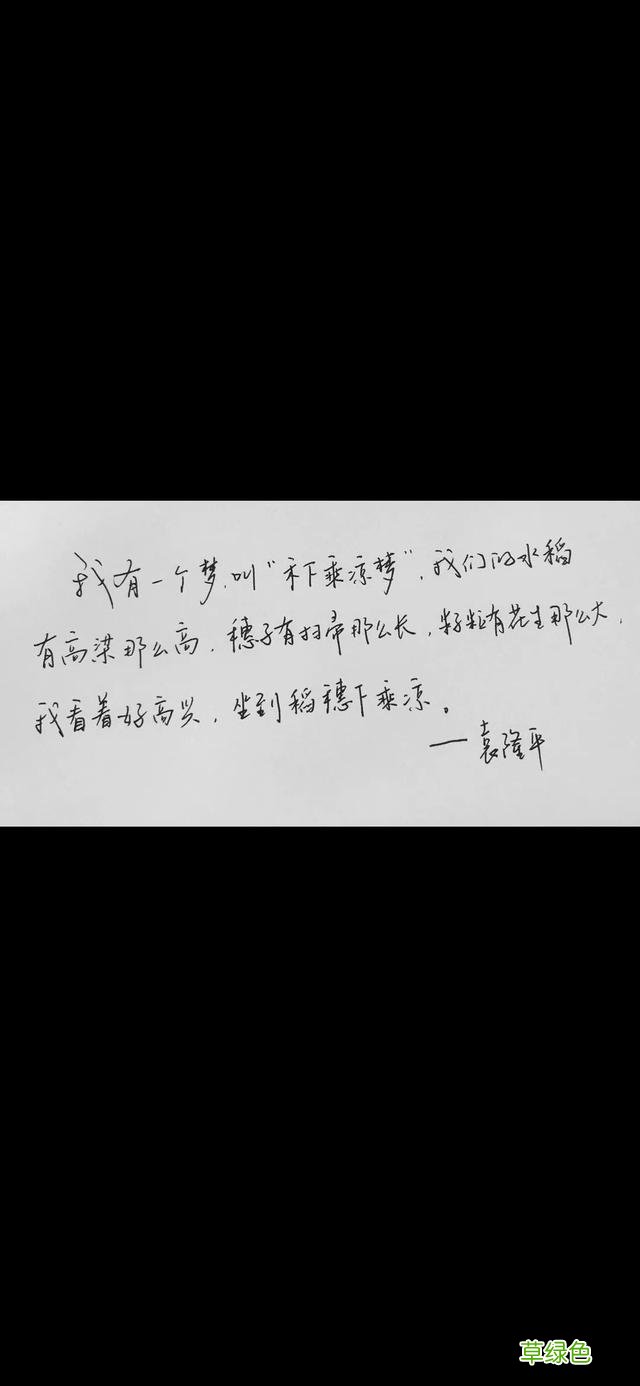 我有一个梦,叫“禾下乘凉梦”,我们的水稻
有高梁那么高,穗子有扫帚那么长,籽粒有花生那么大,
我看着好高兴,坐到稻穗下乘凉。
——袁隆平
草绿色